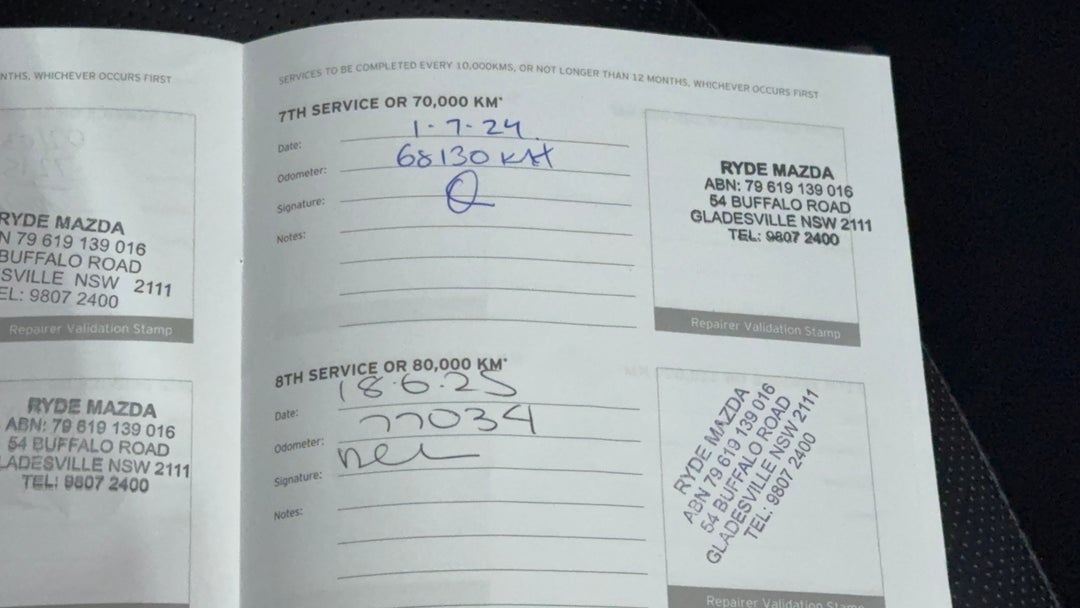 NTHS, WHICHEVER OCCURS FIRST
RYDE MAZDA
N 79 619 139 016
BUFFALO ROAD
SVILLE NSW 2111
EL: 9807 2400
Repairer Validation Stamp
RYDE MAZDA
ABN: 79 619 139 016
54 BUFFALO ROAD
LADESVILLE NSW 2111
TEL: 9807 2400
SERVICES TO BE COMPLETED EVERY 10,000KMS, OR NOT LONGER THAN 12 MONTHS, WHICHEVER OCCURS FIRST
7TH SERVICE OR 70,000 KM*
Date: 1-7-24
Odometer: 68130 KM
Signature:
Notes:
RYDE MAZDA
ABN: 79 619 139 016
54 BUFFALO ROAD
GLADESVILLE NSW 2111
TEL: 9807 2400
Repairer Validation Stamp
8TH SERVICE OR 80,000 KM*
Date: 18.6.25
Odometer: 77034
Signature:
Notes:
RYDE MAZDA
ABN 79 619 139 016
54 BUFFALO ROAD
GLADESVILLE NSW 2111
TEL: 9807 2400
Repairer Validation Stamp